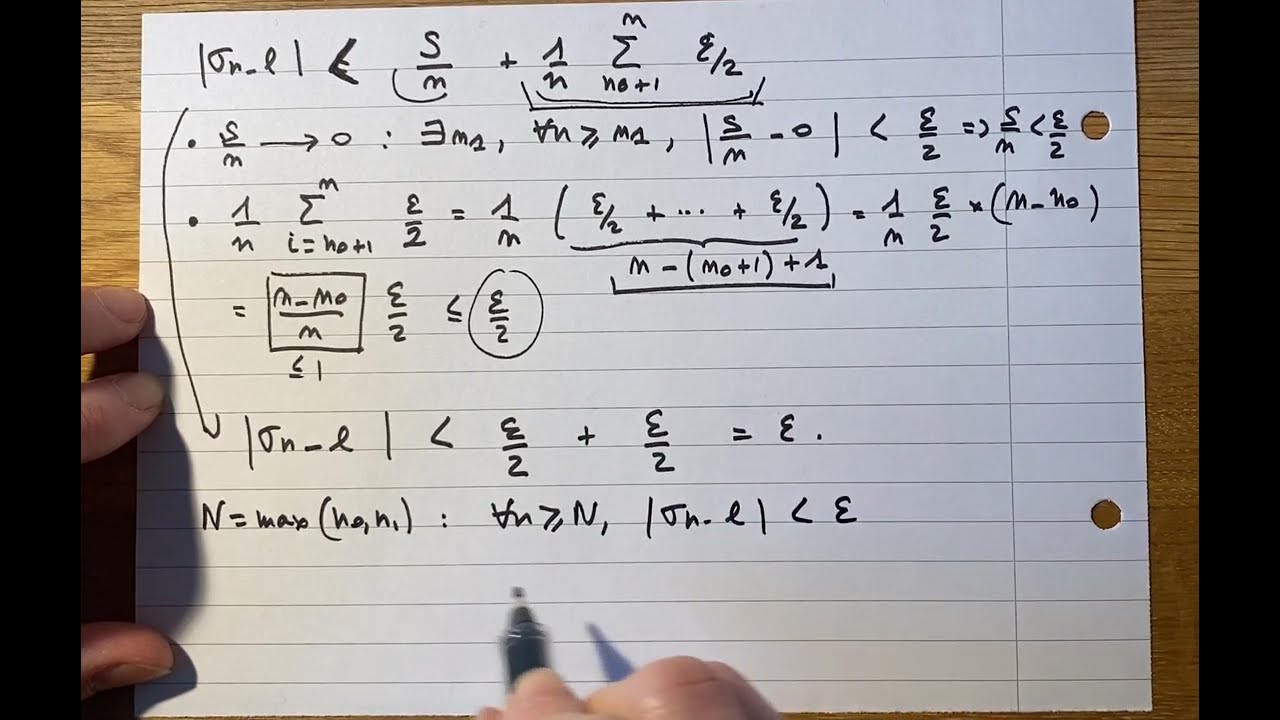 |σn - l| < S/n + 1/n Σ_{n0+1}^{n} ε/2
• S/n ⟶ 0 : ∃n1, ∀n ≥ n1, |S/n - 0| < ε/2 => S/n < ε/2
• 1/n Σ_{i=n0+1}^{n} ε/2 = 1/n (ε/2 + ... + ε/2) = 1/n ε/2 × (n - n0)
n - (n0+1) + 1
= (n - n0)/n ε/2 ≤ ε/2
≤ 1
|σn - l| < ε/2 + ε/2 = ε.
N = max(n0, n1) : ∀n ≥ N, |σn - l| < ε